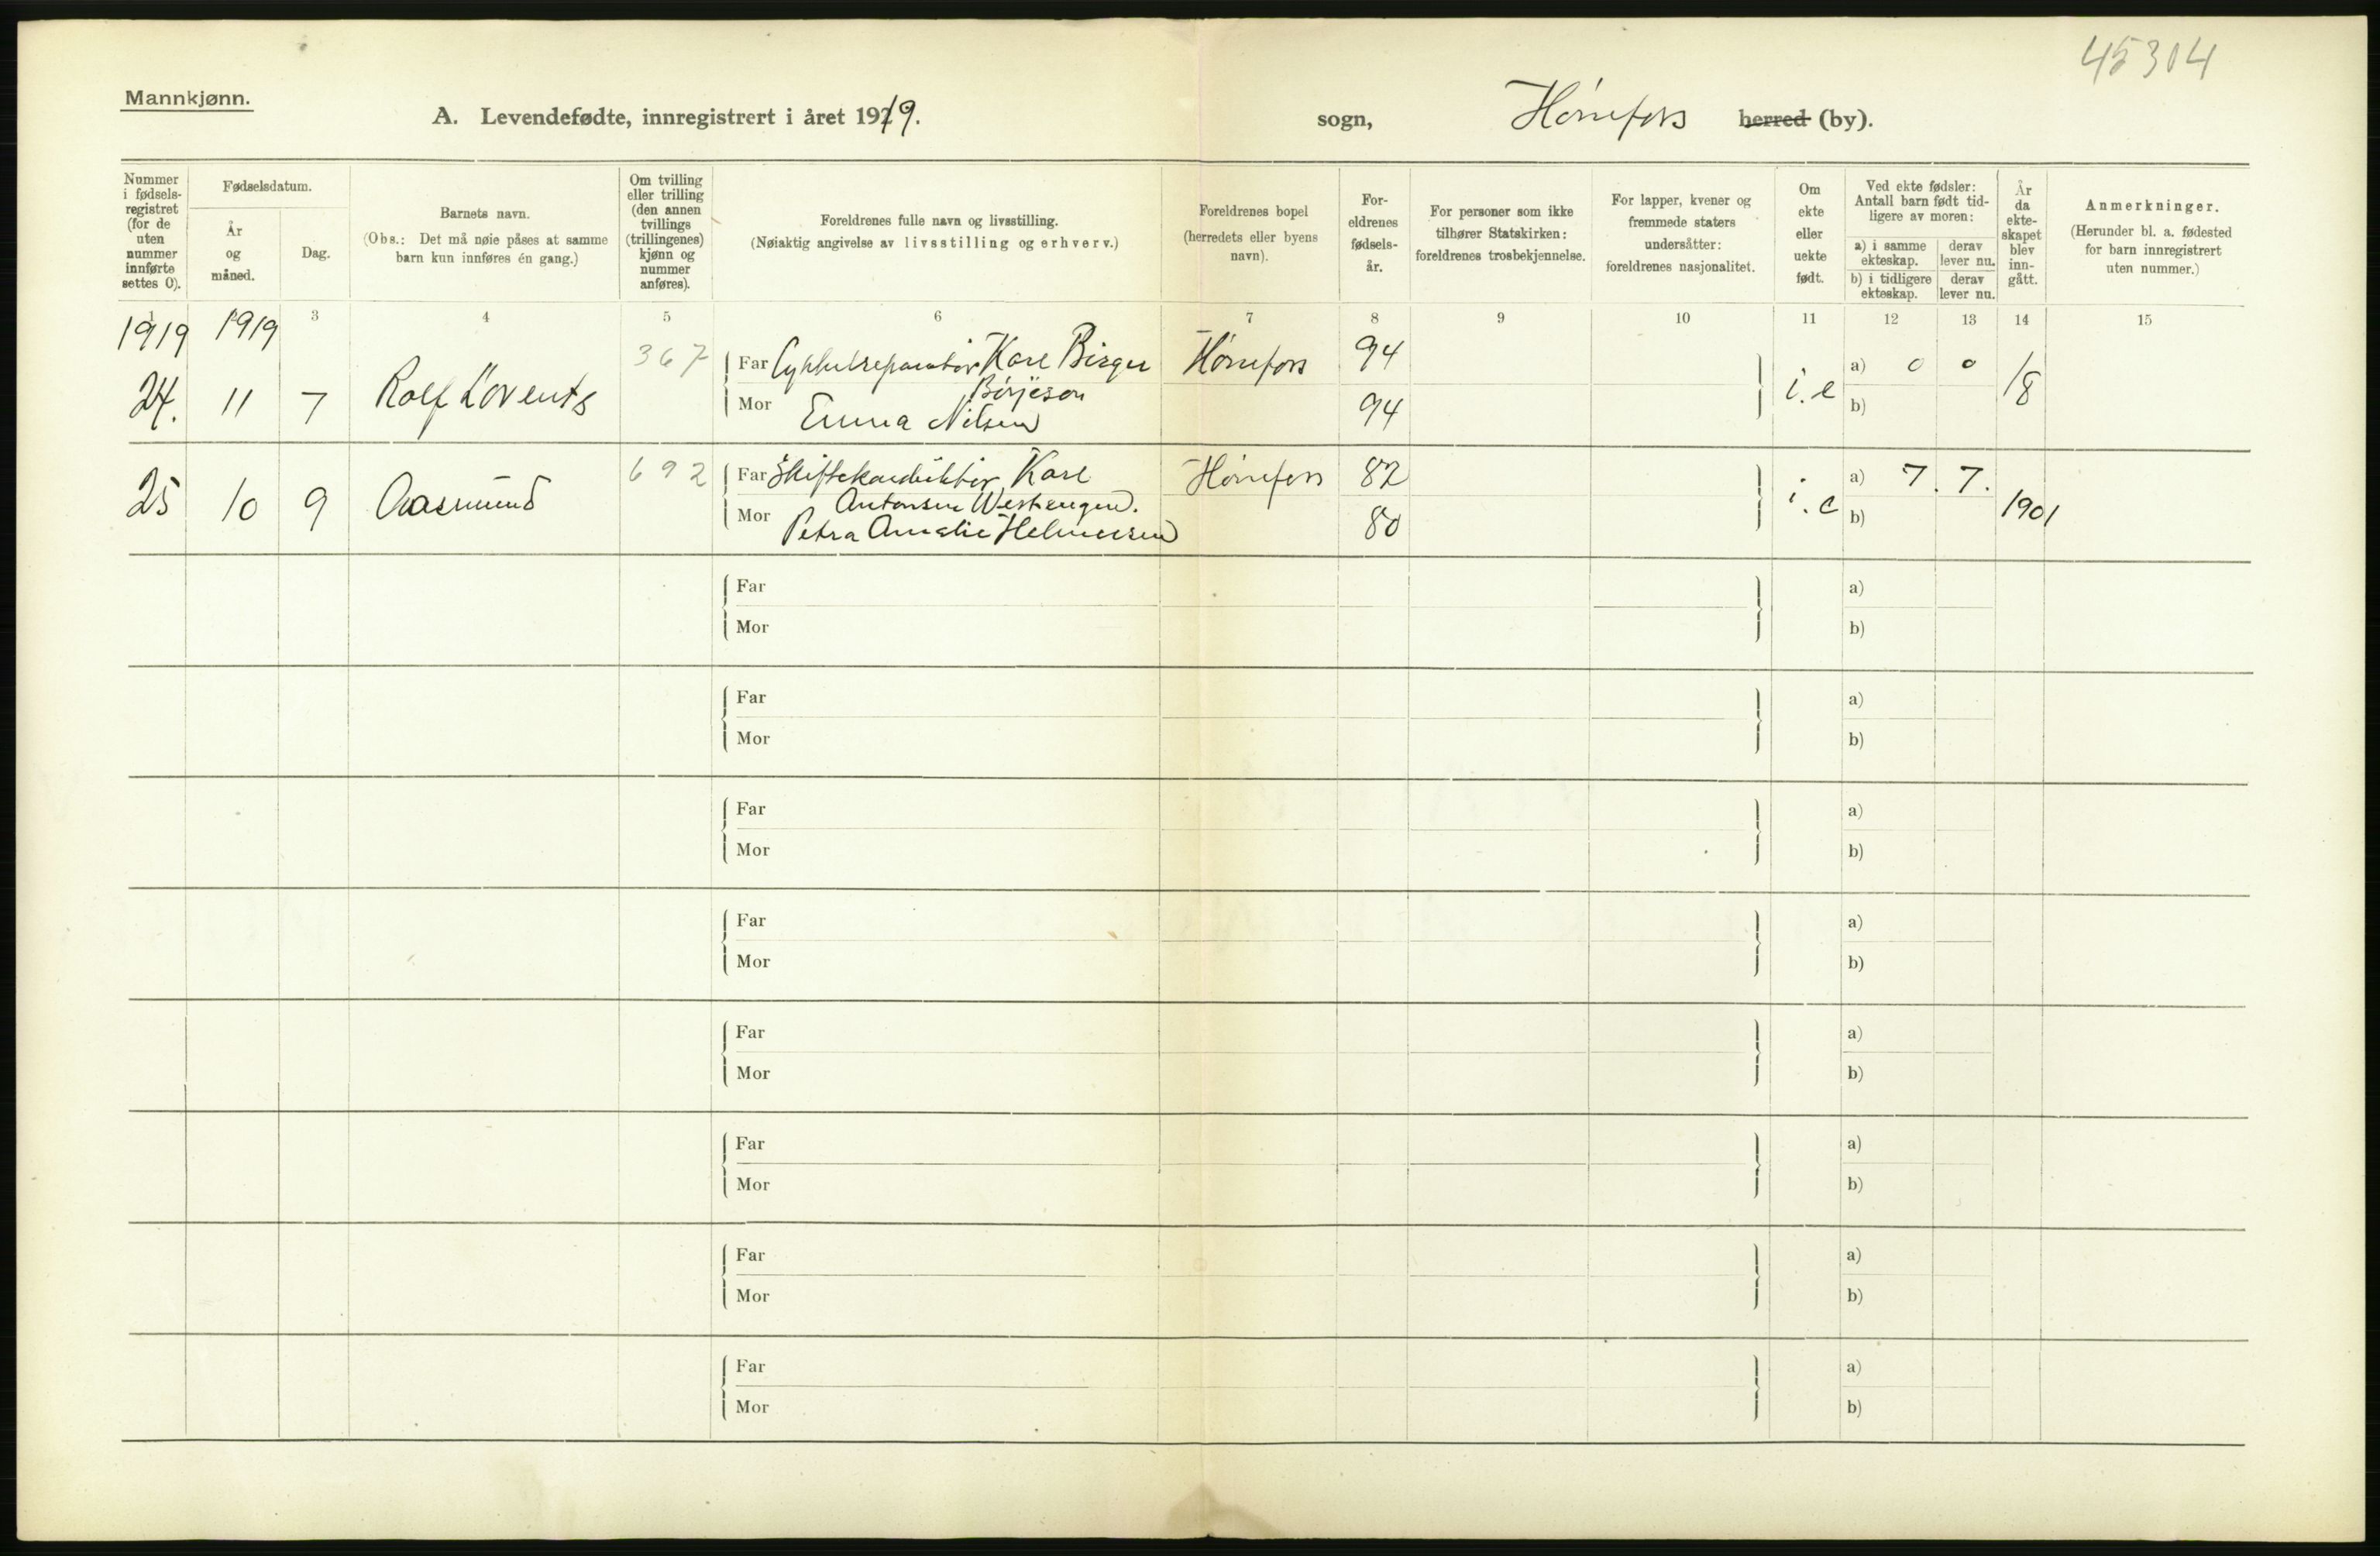 45304
Mannkjønn.
A. Levendefødte, innregistrert i året 1919.
sogn, Hønefoss herred (by).
Nummer i fødselsregistret (for de uten nummer innførte settes 0).
Fødselsdatum.
År og måned.
Dag.
Barnets navn.
(Obs.: Det må nøie påses at samme barn kun innføres én gang.)
Om tvilling eller trilling (den annen tvillings (trillingenes) kjønn og nummer anføres).
Foreldrenes fulle navn og livsstilling.
(Nøiaktig angivelse av livsstilling og erhverv.)
Foreldrenes bopel (herredets eller byens navn).
Foreldrenes fødselsår.
For personer som ikke tilhører Statskirken: foreldrenes trosbekjennelse.
For lapper, kvener og fremmede staters undersåtter: foreldrenes nasjonalitet.
Om ekte eller uekte født.
Ved ekte fødsler: Antall barn født tidligere av moren:
a) i samme ekteskap.
derav lever nu.
b) i tidligere ekteskap.
derav lever nu.
År da ekteskapet blev inngått.
Anmerkninger.
(Herunder bl. a. fødested for barn innregistrert uten nummer.)
1 3 4 5 6 7 8 9 10 11 12 13 14 15
1919 1919
24. 11 7 Rolf Lorents 367 Far Cykkelreparatør Karl Birger Børjeson Hønefoss 94 i.e a) 0 0 18
Mor Emma Nilsen 94 b)
25 10 9 Aasmund 692 Far Skiftekonduktør Karl Antonsen Westengen. Hønefoss 82 i.e a) 7. 7. 1901
Mor Petra Amalie Helmersen 80 b)
Far a)
Mor b)
Far a)
Mor b)
Far a)
Mor b)
Far a)
Mor b)
Far a)
Mor b)
Far a)
Mor b)
Far a)
Mor b)
Far a)
Mor b)